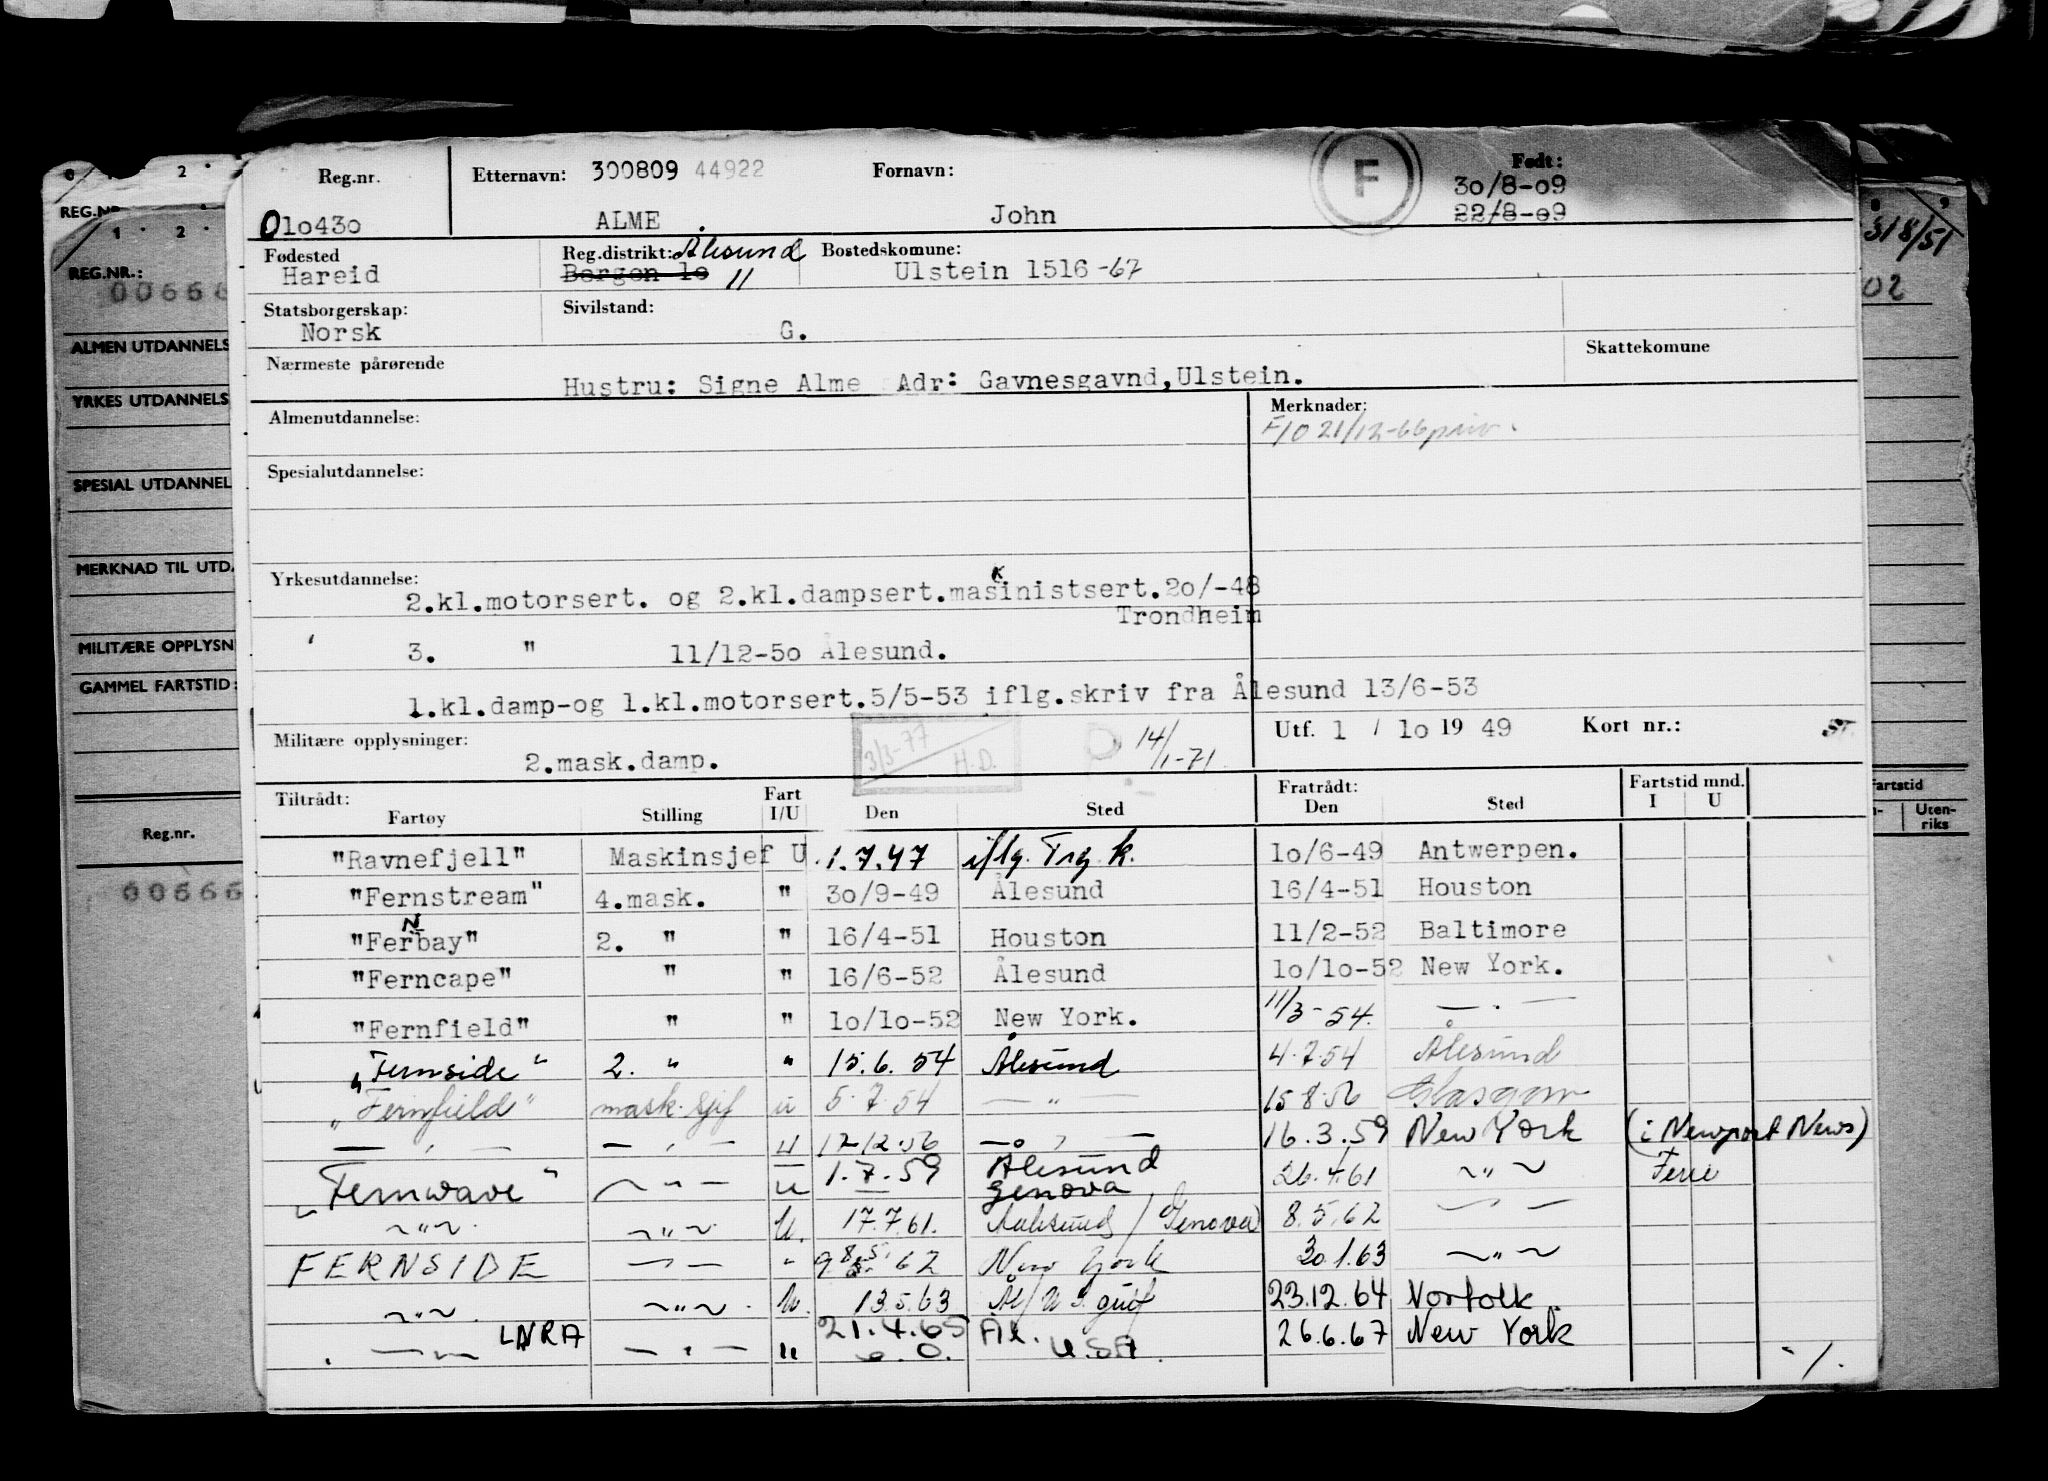 Reg.nr. Etternavn: 300809 44922 Fornavn: F Født:
30/8-09
010430 ALME John 22/8-09
Fødested Reg.distrikt: Ålesund Bostedskomune:
Hareid Bergen 10 11 Ulstein 1516 -67
Statsborgerskap: Sivilstand:
Norsk G.
Nærmeste pårørende Skattekomune
Hustru: Signe Alme Adr: Gavnesgavnd,Ulstein.
Almenutdannelse: Merknader:
F/10 21/12-66 priv.
Spesialutdannelse:
Yrkesutdannelse:
2.kl.motorsert. og 2.kl.dampsert.masinistsert.20/-48
K
Trondheim
3. " 11/12-50 Ålesund.
1.kl.damp-og 1.kl.motorsert.5/5-53 iflg.skriv fra Ålesund 13/6-53
Militære opplysninger: Utf. 1 / 10 19 49 Kort nr.:
2.mask.damp. 3/3-77 H.D. 14/1-71
Tiltrådt: Fart Fratrådt: Fartstid mnd.
Fartøy Stilling I/U Den Sted Den Sted I U
"Ravnefjell" Maskinsjef U 1.7.47 iflg. Trg. k. 10/6-49 Antwerpen.
"Fernstream" 4.mask. " 30/9-49 Ålesund 16/4-51 Houston
N
"Ferbay" 2. " " 16/4-51 Houston 11/2-52 Baltimore
"Ferncape" " " 16/6-52 Ålesund 10/10-52 New York.
"Fernfield" " " 10/10-52 New York. 11/3-54. — . —
"Fernside" 2. " " 15.6.54 Ålesund 4.7.54 Ålesund
"Fernfield" mask.sjef u 5.7.54 — " — 15.8.56 Glasgow
— , — — , — u 17.12.56 — , — 16.3.59 New York (i Newport News)
"Fernwave" — " — u 1.7.59 Ålesund Genova 26.4.61 — " — Ferie
— " — — " — U. 17.7.61. Aalesund / Genova 8.5.62 — " —
FERNSIDE — " — " 62 New York 30.1.63 — " —
— " — — " — U. 13.5.63 Ål/U.S. gulf 23.12.64 Norfolk.
LNRA 21.4.65 Ål. USA. 26.6.67 New York
— " — — " — u
./.
REG.NR.:
00666
ALMEN UTDANNELS
YRKES UTDANNELS
SPESIAL UTDANNEL
MERKNAD TIL UTD
MILITÆRE OPPLYSN
GAMMEL FARTSTID:
Reg.nr.
00666
318/51
02
artstid
Uten-
riks